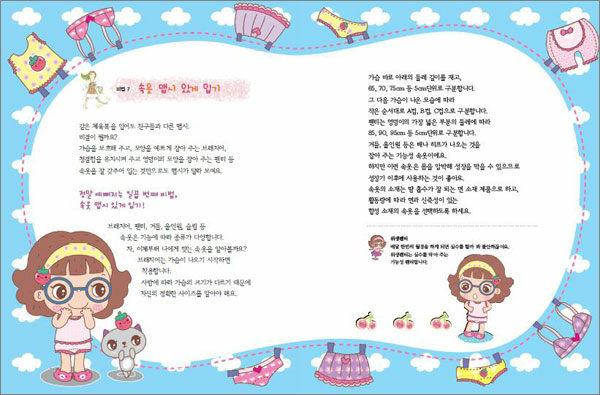 비법 7 속옷 맵시 있게 입기
같은 체육복을 입어도 친구들과 다른 맵시.
비결이 뭘까요?
가슴을 보호해 주고, 모양을 예쁘게 잡아 주는 브래지어,
청결함을 유지시켜 주고 엉덩이의 모양을 잡아 주는 팬티 등
속옷을 잘 갖추어 입는 것만으로도 맵시가 달라 보여요.
정말 예뻐지는 일곱 번째 비법,
속옷 맵시 있게 입기!
브래지어, 팬티, 거들, 올인원, 슬립 등
속옷은 기능에 따라 종류가 다양합니다.
자, 이제부터 나에게 맞는 속옷을 알아볼까요?
브래지어는 가슴이 나오기 시작하면
착용합니다.
사람에 따라 가슴의 크기가 다르기 때문에
자신의 정확한 사이즈를 알아야 해요.
가슴 바로 아래의 둘레 길이를 재고,
65, 70, 75cm 등 5cm단위로 구분합니다.
그 다음 가슴이 나온 모습에 따라
작은 순서대로 A컵, B컵, C컵으로 구분합니다.
팬티는 엉덩이의 가장 넓은 부분의 둘레에 따라
85, 90, 95cm 등 5cm단위로 구분합니다.
거들, 올인원 등은 배나 히프가 나오는 것을
잡아 주는 기능성 속옷이에요.
하지만 이런 속옷은 몸을 압박해 성장을 막을 수 있으므로
성장기 이후에 사용하는 것이 좋아요.
속옷의 소재는 땀 흡수가 잘 되는 면 소재 제품으로 하고,
활동량에 따라 면과 신축성이 있는
합성 소재의 속옷을 선택하도록 하세요.
위생팬티
매달 한번의 월경을 하게 되면 실수를 할까 봐 불안하잖아요.
위생팬티는 실수를 막아 주는
기능성 팬티랍니다.